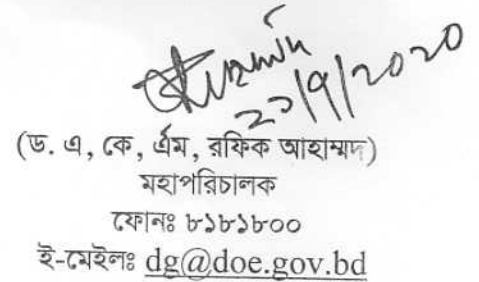 ২১/৭/২০২০
(ড. এ, কে, এম, রফিক আহাম্মদ)
মহাপরিচালক
ফোনঃ ৮১৮১৮০০
ই-মেইলঃ dg@doe.gov.bd